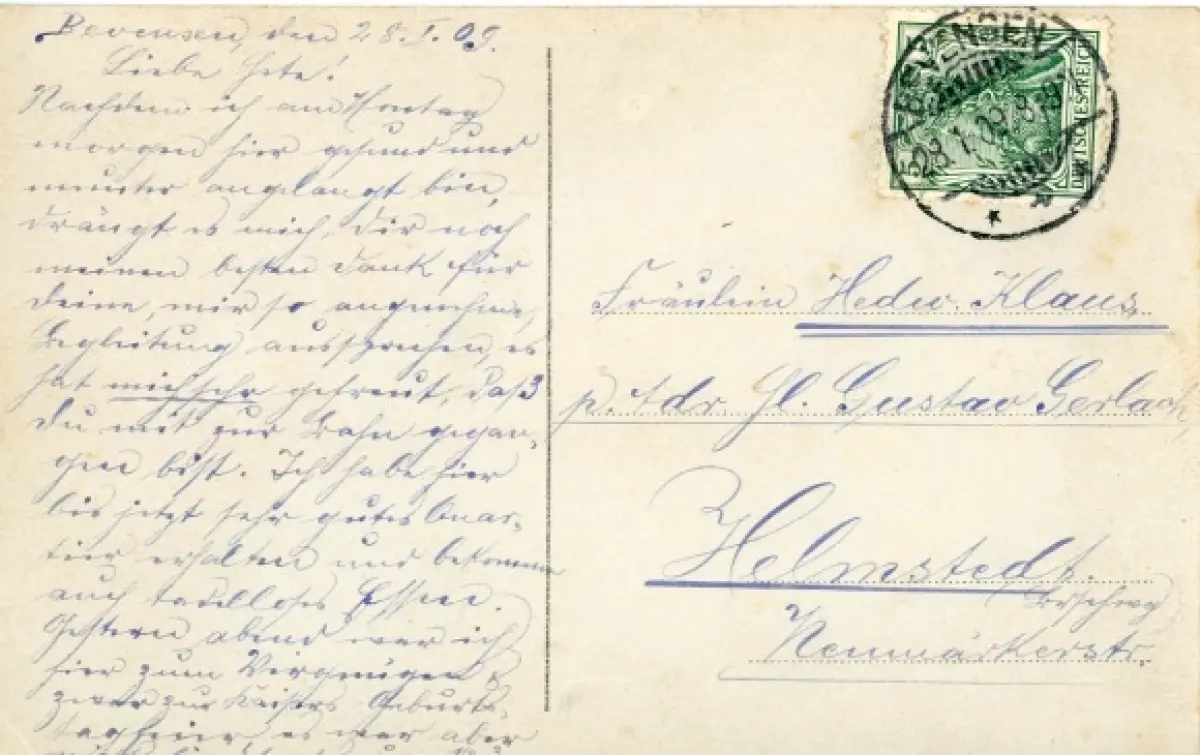 Bevensen, den 28.I.09.
Liebe Hete!
Nachdem ich am Montag
morgen hier gesund und
munter anglangt bin,
drängt es mich, dir noch
meinen besten Dank für
deine, mir so angenehme,
Begleitung aussprechen, es
hat mich sehr gefreut, daß
du mit zur Bahn gegan-
gen bist. Ich habe hier
bis jetzt sehr gutes Quar-
tier erhalten und bekomme
auch tadelloses Essen.
Gestern abend war ich
hier zum Vergnügen &
zwar zur Kaisers Geburts-
tagfeier es war aber
BEVENSEN
28.1.09.
DEUTSCHES REICH
5
Fräulein Hedw. Klaus,
p. Adr. Gustav Gerlach,
Helmstedt.
Brschwg
Neumärkerstr.